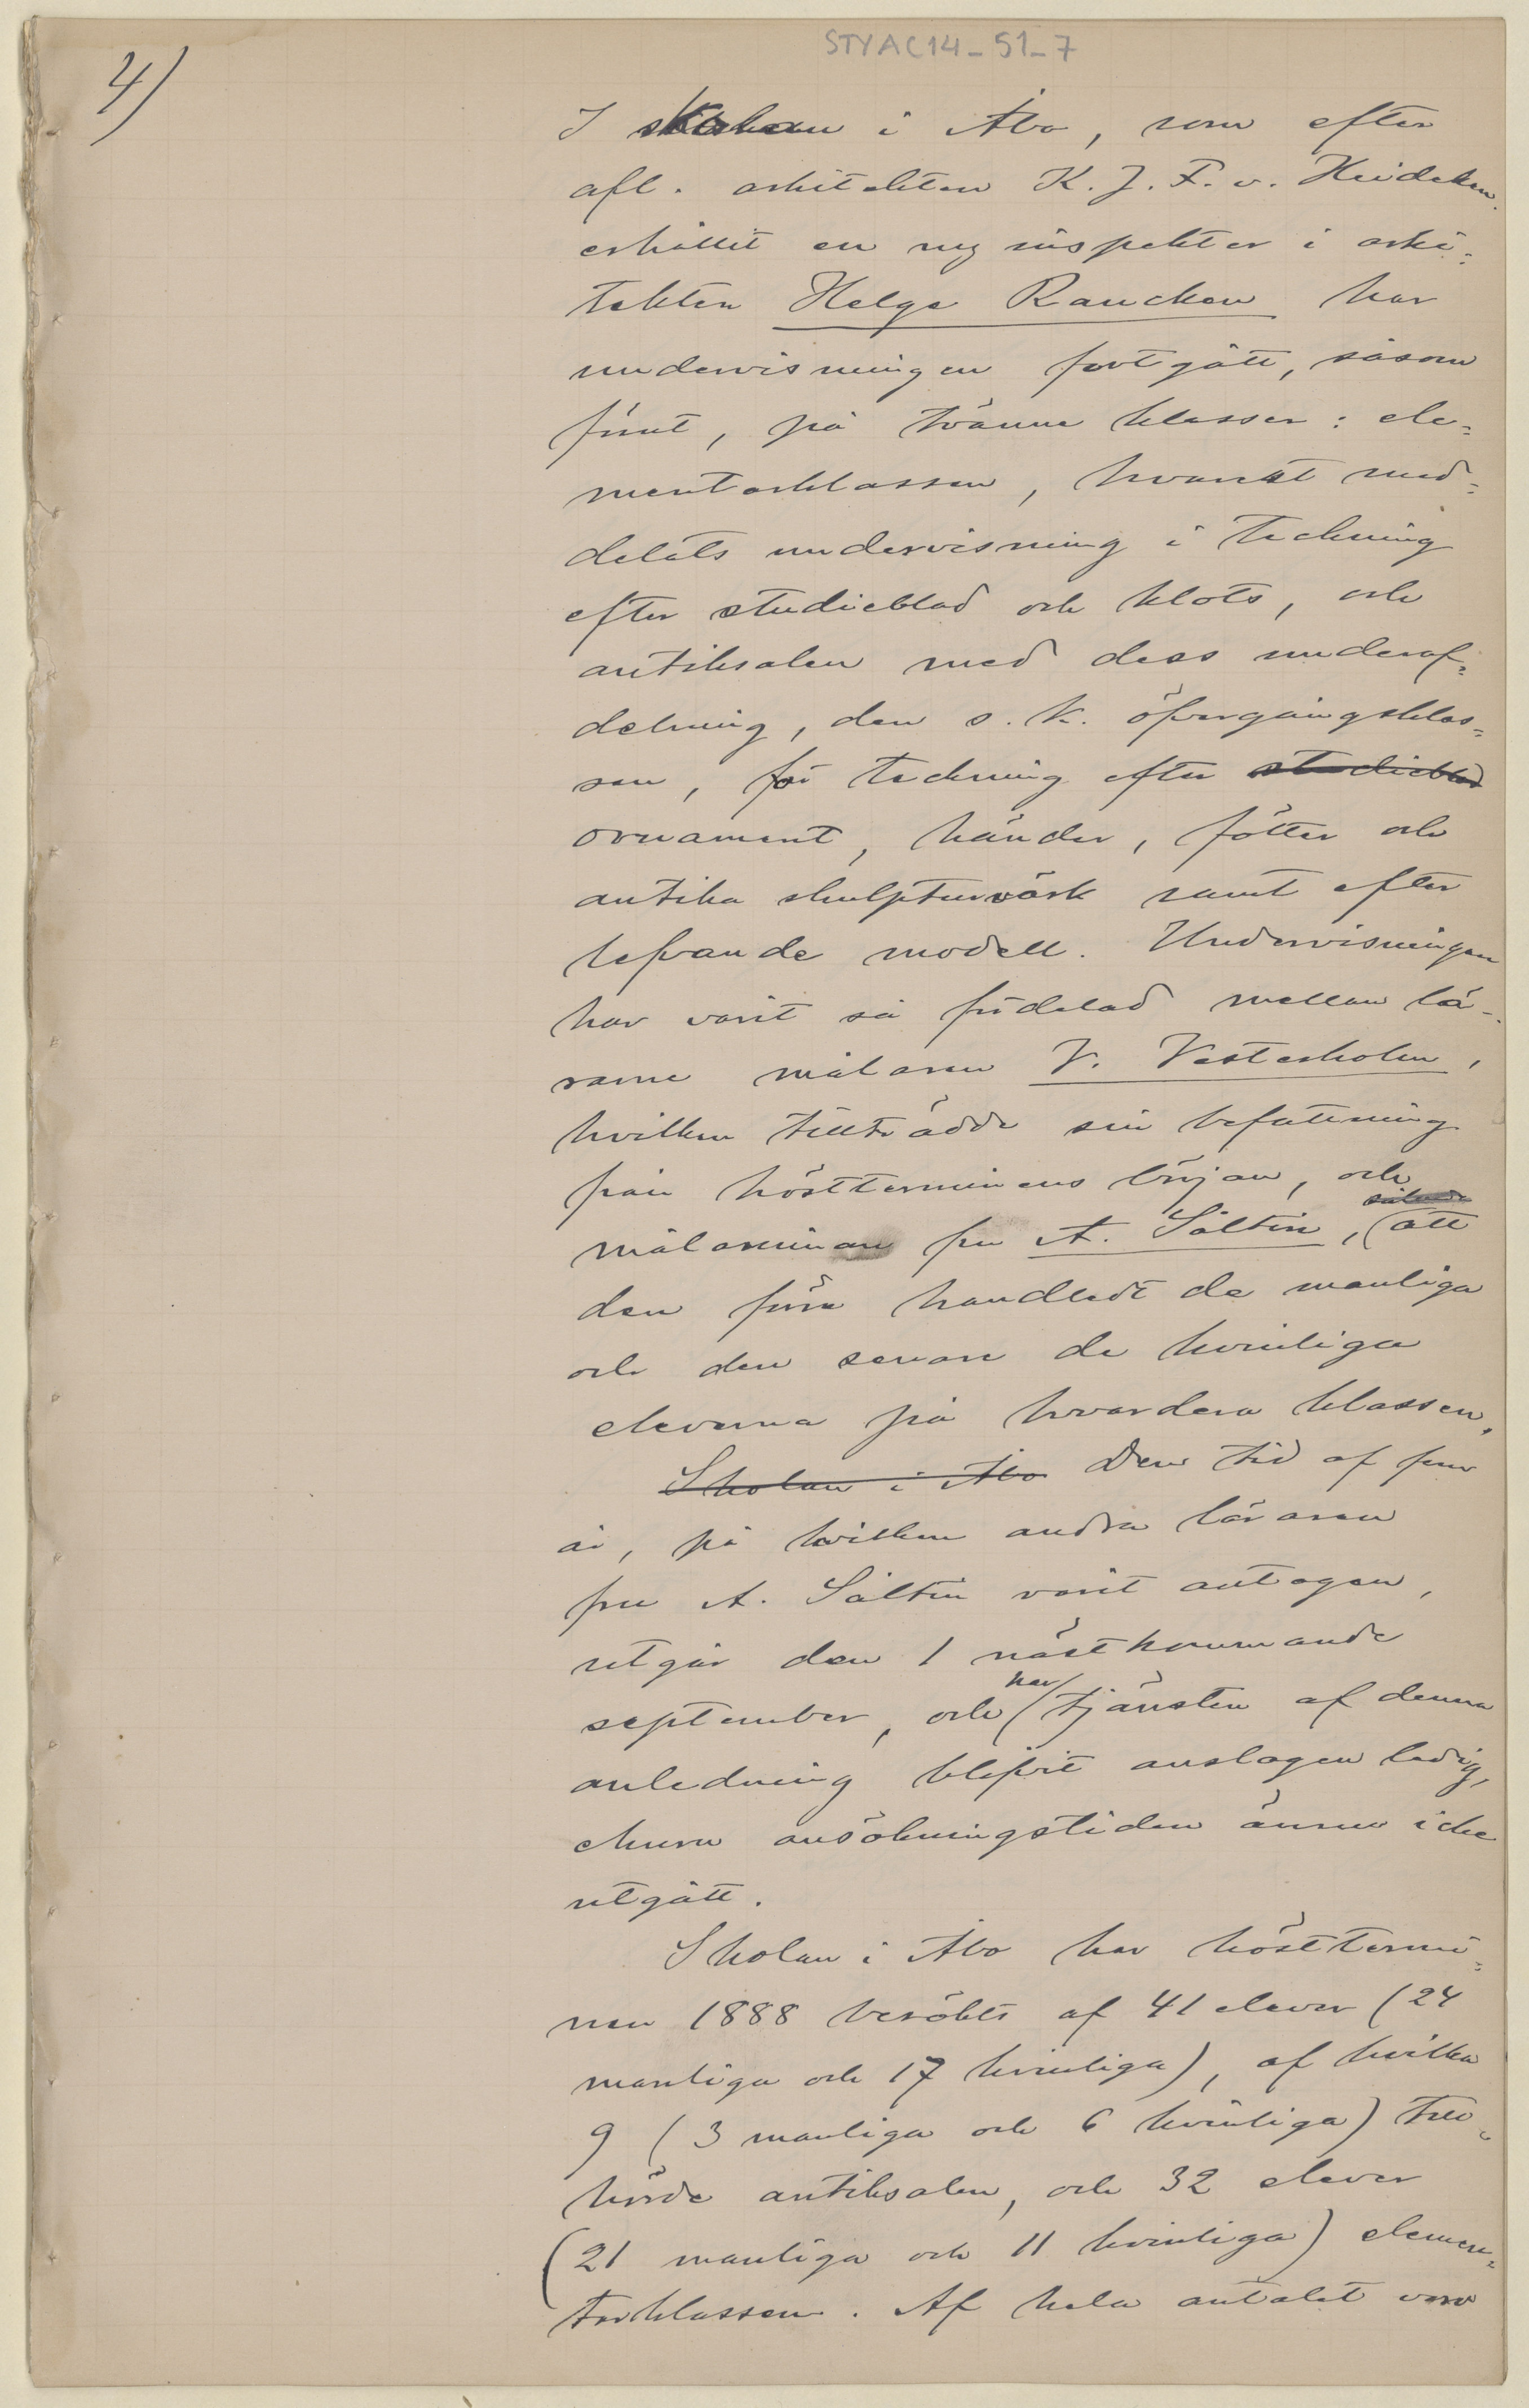 STYAC14_51_7
4)
I skolan i Åbo, som efter
afl. arkitekten K. J. F. v. Heideken
erhållit en ny inspektor i arki-
tekten Helge Rancken har
undervisningen fortgått, såsom
förut, på tvänne klasser: ele-
mentarklassen, hvarest med-
delats undervisning i teckning
efter studieblad och klots, och
antiksalen med dess underaf-
delning, den s. k. öfvergångsklas-
sen, för teckning efter studieblad
ornament, händer, fötter och
antika skulpturvärk samt efter
lefvande modell. Undervisningen
har varit så fördelad mellan lä-
rarne målaren V. Vesterholm,
hvilken tillträdde sin befattning
från höstterminens början, och
målarinnan fru A. Sältin, att
den förre handledt de manliga
och den senare de kvinliga
eleverna på hvardera klassen.
Skolan i Åbo Den tid af fem
år, på hvilken andra läraren
fru A. Sältin varit antagen,
utgår den 1 nästkommande
har
september, och tjänsten af denna
anledning blifvit anslagen ledig,
ehuru ansökningstiden ännu icke
utgått.
Skolan i Åbo har höstermi-
nen 1888 besökts af 41 elever (24
manliga och 17 kvinliga), af hvilka
9 (3 manliga och 6 kvinliga) till-
hörde antiksalen, och 32 elever
(21 manliga och 11 kvinliga) elemen-
tarklassen. Af hela antalet voro